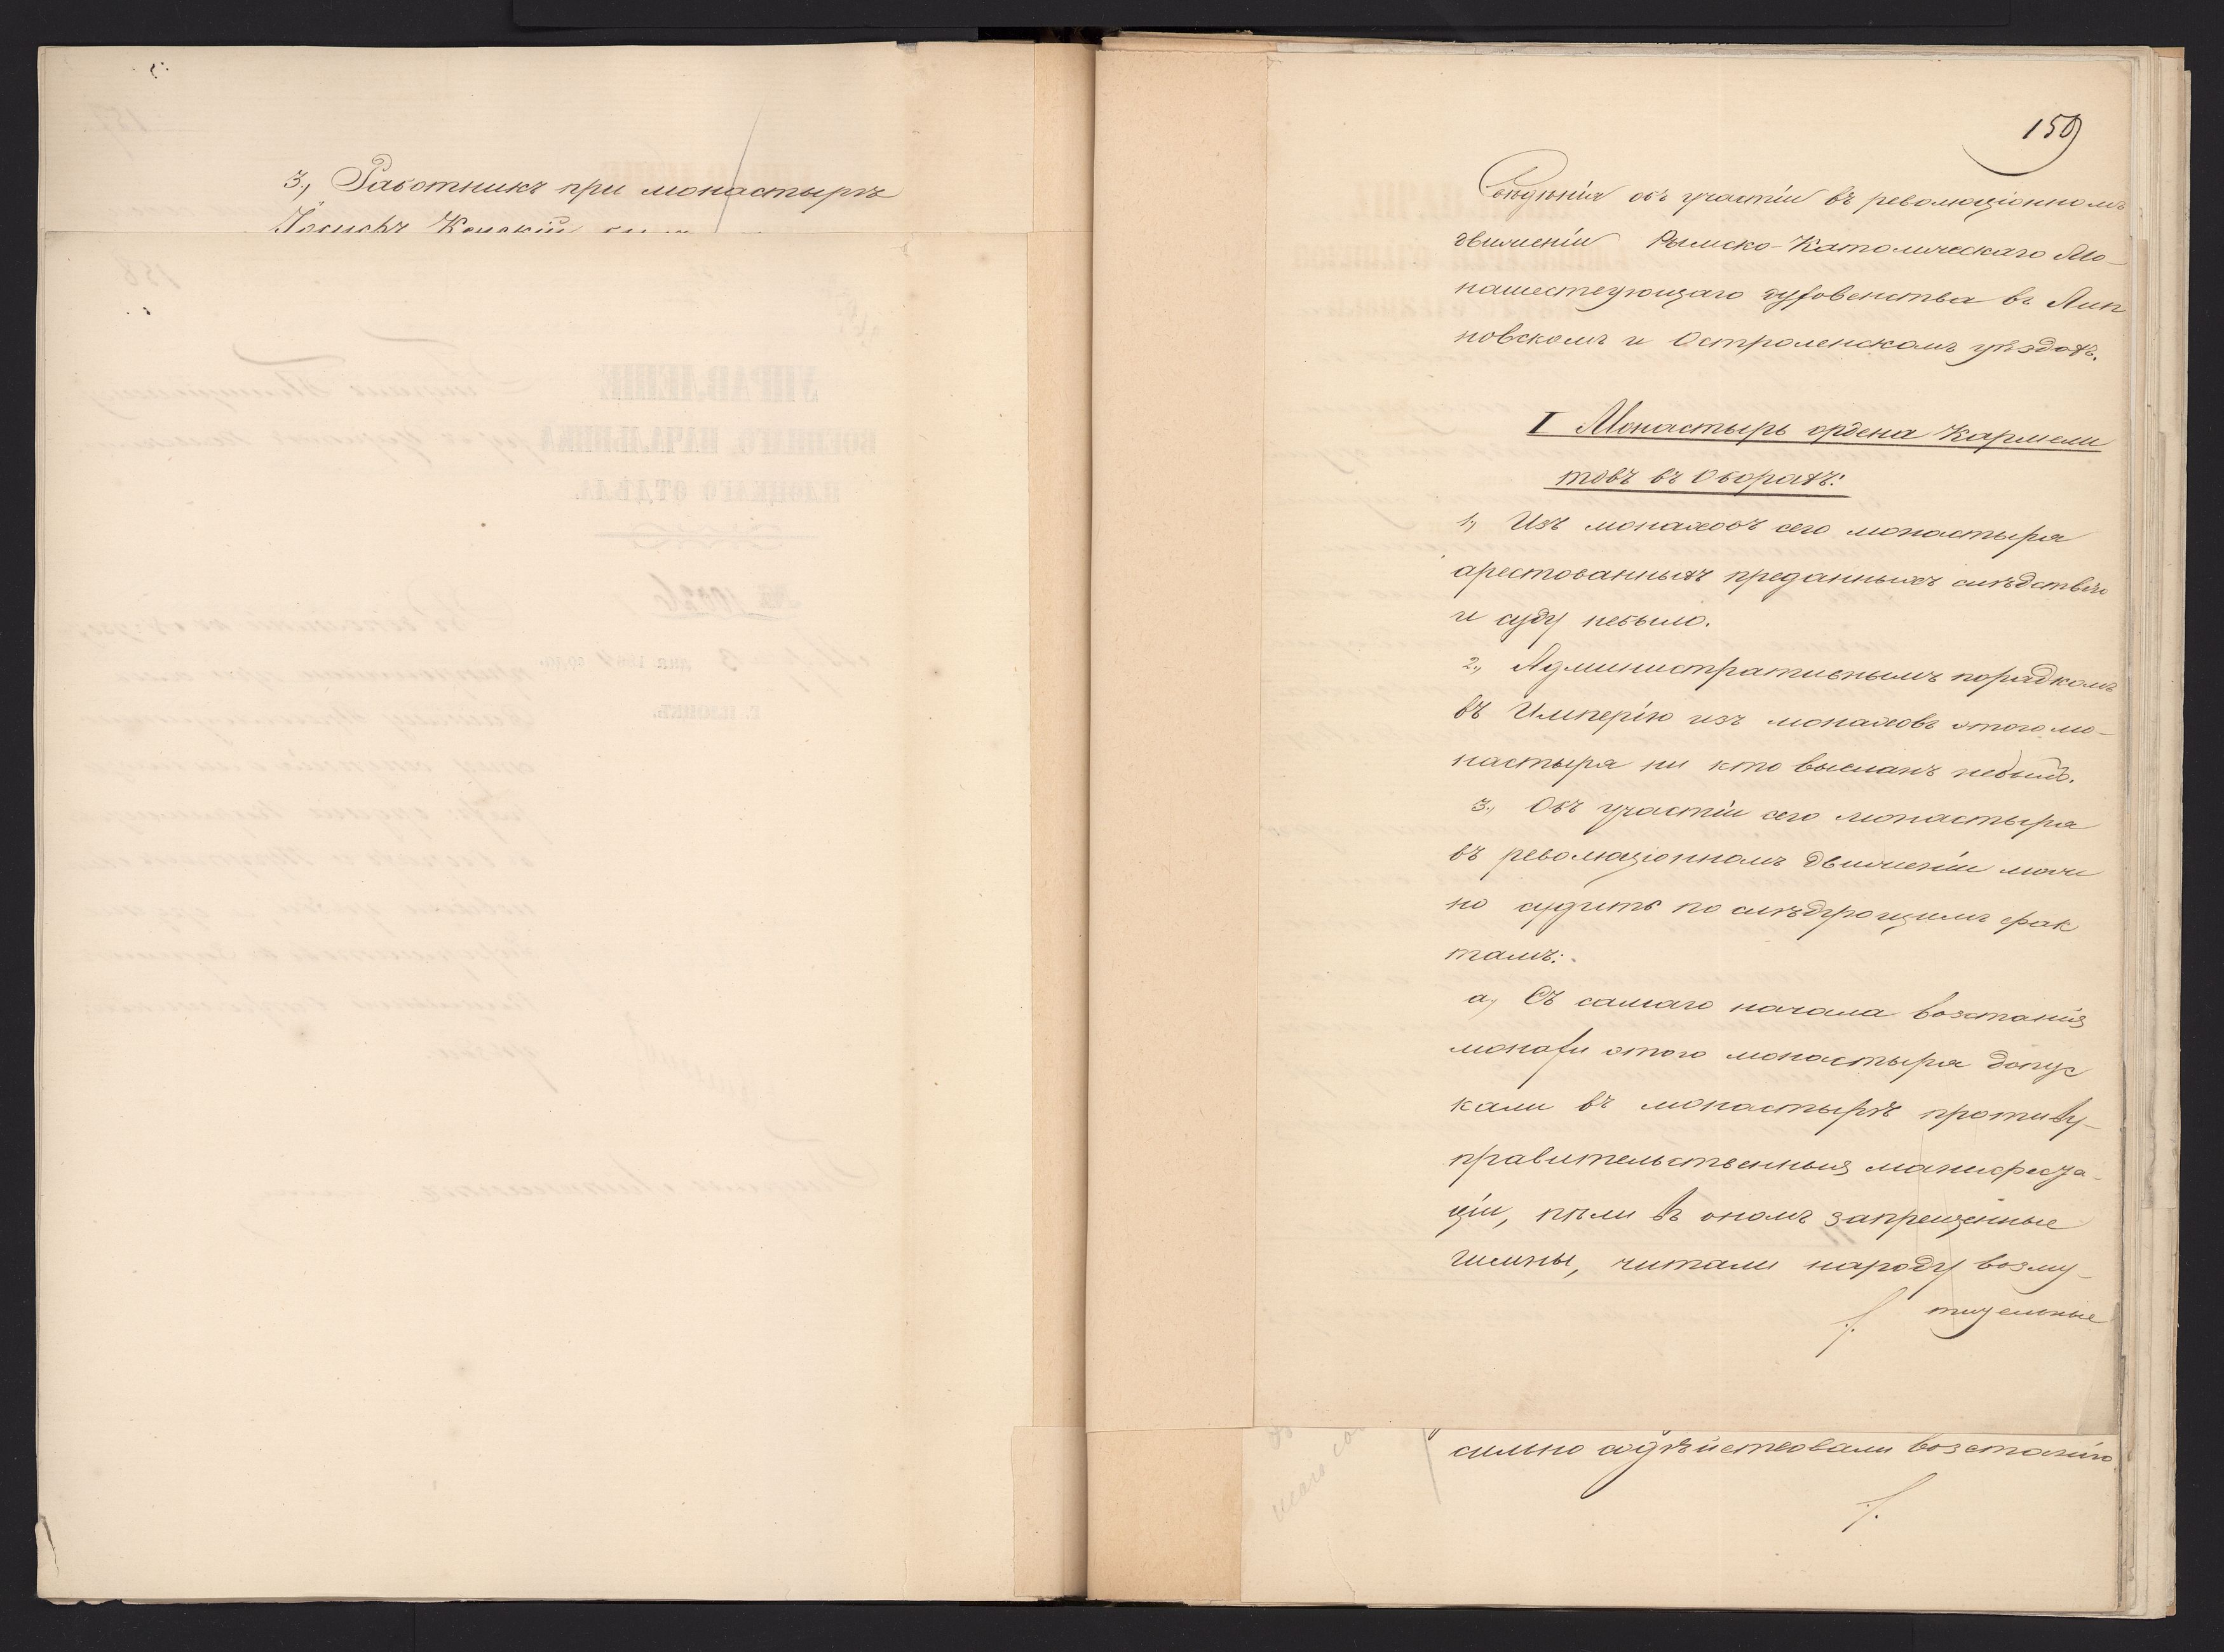 3., Работникъ при монастырѣ
Іосифъ
159
Свѣдѣнія объ участіи въ революціонномъ
движеніи Римско-Католическаго Мо-
нашествующаго духовенства въ Лип
новскомъ и Остроленскомъ уѣздахъ.
I Монастырь ордена Кармели
товъ въ Оборахъ:
1., Изъ монаховъ сего монастыря
арестованныхъ преданныхъ слѣдствію
и суду небыло.
2., Административнымъ порядкомъ
въ Имперію изъ монаховъ этого мо-
настыря ни кто высланъ небылъ.
3., Объ участіи сего монастыря
въ революціонномъ движеніи мож
но судить по слѣдующимъ фак
тамъ:
а, Съ самаго начала возстанія
монахи этого монастыря допус
кали въ монастырѣ противу-
правительственныя манифеста-
ціи, пѣли въ ономъ запрещенные
гимны, читали народу возму-
тительные
сильно содѣйствовали возстанію
УПРАВЛЕНІЕ
ВОЕННАГО НАЧАЛЬНИКА
ПЛОЦКАГО ОТДѢЛА.
158